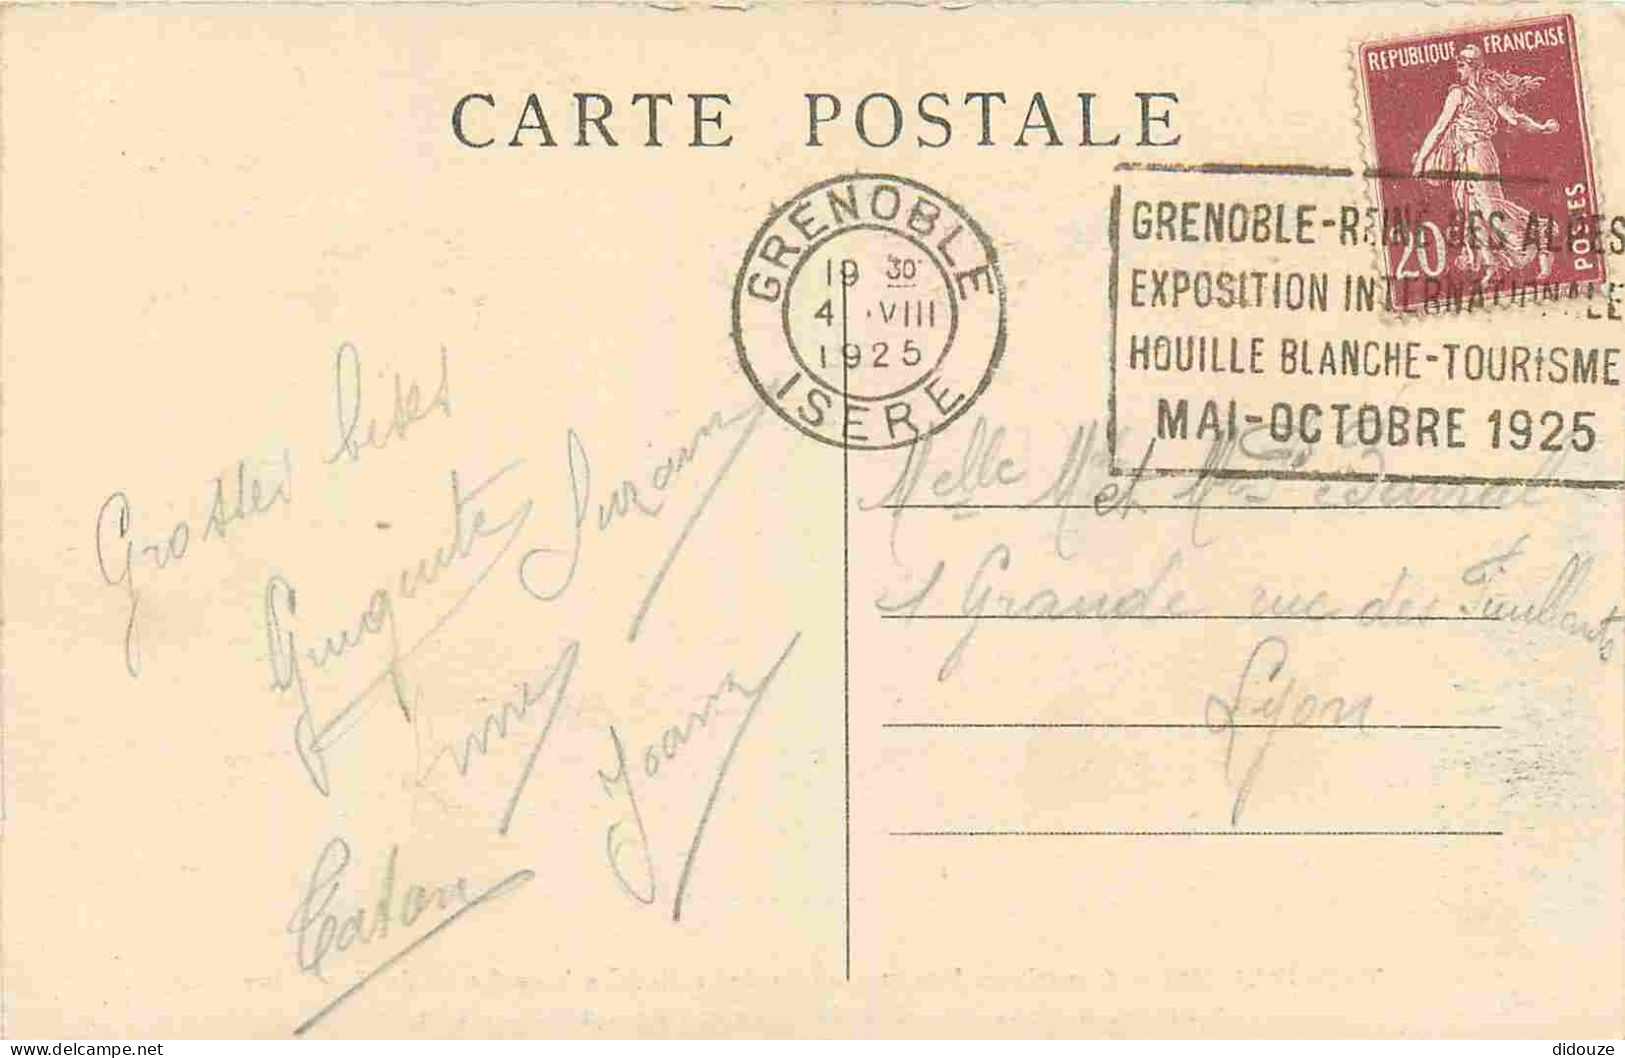 CARTE POSTALE
REPUBLIQUE FRANÇAISE
20
POSTES
GRENOBLE
19 30
4 ·VIII
1925
ISERE
GRENOBLE-REINE DES ALPES
EXPOSITION INTERNATIONALE
HOUILLE BLANCHE-TOURISME
MAI-OCTOBRE 1925
Grosses bises
Suzanne
Joanny
Caton
Melle Mr et Mme
1 Grande rue des Feuillants
Lyon
delcampe.net
didouze